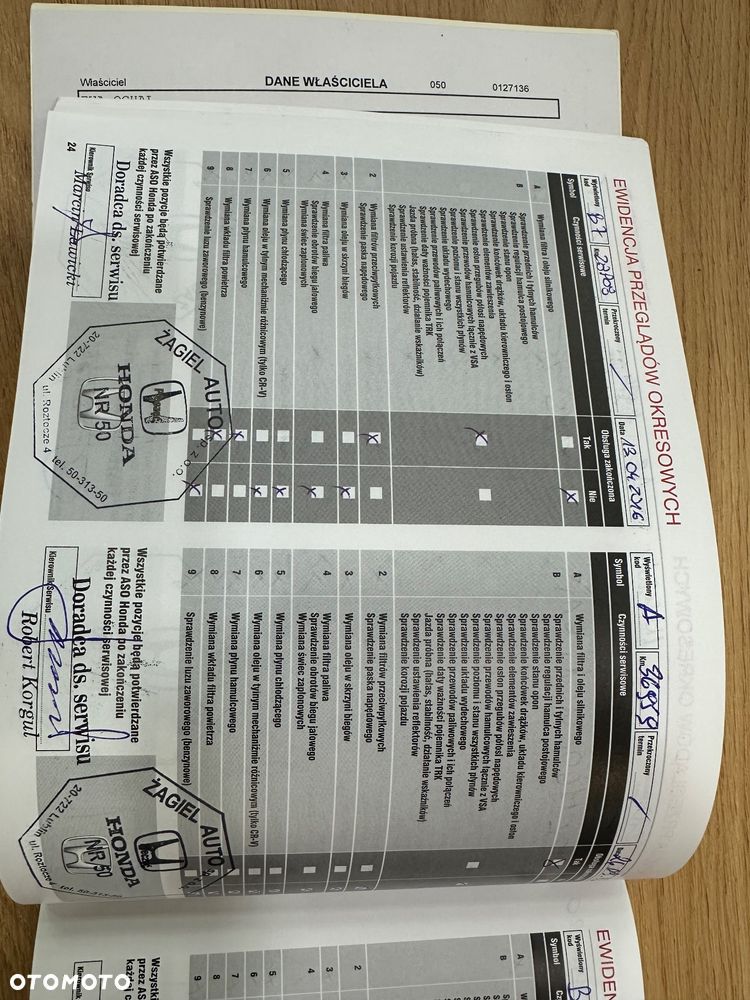 Właściciel DANE WŁAŚCICIELA 050 0127136
EWIDENCJA PRZEGLĄDÓW OKRESOWYCH
Wyświetlony kod B7
Przekroczony termin /
Data 13.04.2016
Symbol Czynności serwisowe Obsługa zakończona
Tak Nie
A Wymiana filtra i oleju silnikowego
B Sprawdzenie przednich i tylnych hamulców
Sprawdzenie regulacji hamulca postojowego
Sprawdzenie stanu opon
Sprawdzenie końcówek drążków, układu kierowniczego i osłon
Sprawdzenie elementów zawieszenia
Sprawdzenie osłon przegubów półosi napędowych
Sprawdzenie przewodów hamulcowych łącznie z VSA
Sprawdzenie poziomu i stanu wszystkich płynów
Sprawdzenie układu wydechowego
Sprawdzenie przewodów paliwowych i ich połączeń
Sprawdzenie daty ważności pojemnika TRK
Jazda próbna (hałas, stabilność, działanie wskaźników)
Sprawdzenie ustawienia reflektorów
Sprawdzenie korozji pojazdu
2 Wymiana filtrów przeciwpyłkowych
Sprawdzenie paska napędowego
3 Wymiana oleju w skrzyni biegów
4 Wymiana filtra paliwa
Sprawdzenie obrotów biegu jałowego
Wymiana świec zapłonowych
5 Wymiana płynu chłodzącego
6 Wymiana oleju w tylnym mechanizmie różnicowym (tylko CR-V)
7 Wymiana płynu hamulcowego
8 Wymiana wkładu filtra powietrza
9 Sprawdzenie luzu zaworowego (benzynowe)
Wszystkie pozycje będą potwierdzane
przez ASO Honda po zakończeniu
każdej czynności serwisowej
Kierownik Serwisu
Doradca ds. serwisu
Marcin Ławicki
24
ŻAGIEL AUTO
HONDA
NR 50
20-722 Lublin ul. Roztocze 4 tel. 50-313-50
Wyświetlony kod A
Km 36959
Przekroczony termin /
Symbol Czynności serwisowe
A Wymiana filtra i oleju silnikowego
B Sprawdzenie przednich i tylnych hamulców
Sprawdzenie regulacji hamulca postojowego
Sprawdzenie stanu opon
Sprawdzenie końcówek drążków, układu kierowniczego i osłon
Sprawdzenie elementów zawieszenia
Sprawdzenie osłon przegubów półosi napędowych
Sprawdzenie przewodów hamulcowych łącznie z VSA
Sprawdzenie poziomu i stanu wszystkich płynów
Sprawdzenie układu wydechowego
Sprawdzenie przewodów paliwowych i ich połączeń
Sprawdzenie daty ważności pojemnika TRK
Jazda próbna (hałas, stabilność, działanie wskaźników)
Sprawdzenie ustawienia reflektorów
Sprawdzenie korozji pojazdu
2 Wymiana filtrów przeciwpyłkowych
Sprawdzenie paska napędowego
3 Wymiana oleju w skrzyni biegów
4 Wymiana filtra paliwa
Sprawdzenie obrotów biegu jałowego
Wymiana świec zapłonowych
5 Wymiana płynu chłodzącego
6 Wymiana oleju w tylnym mechanizmie różnicowym (tylko CR-V)
7 Wymiana płynu hamulcowego
8 Wymiana wkładu filtra powietrza
9 Sprawdzenie luzu zaworowego (benzynowe)
Wszystkie pozycje będą potwierdzane
przez ASO Honda po zakończeniu
każdej czynności serwisowej
Kierownik Serwisu
Doradca ds. serwisu
Robert Korgul
ŻAGIEL AUTO
HONDA
NR 50
20-722 Lublin ul. Roztocze 4 tel. 50-313-50
Wyświetlony kod B
Symbol
A
B
2
3
4
5
6
7
8
9
OTOMOTO